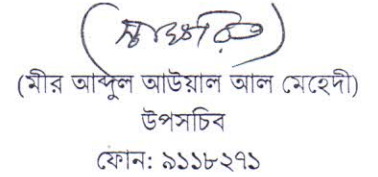 (স্বাক্ষরিত)
(মীর আব্দুল আউয়াল আল মেহেদী)
উপসচিব
ফোন: ৯১১৮২৭১